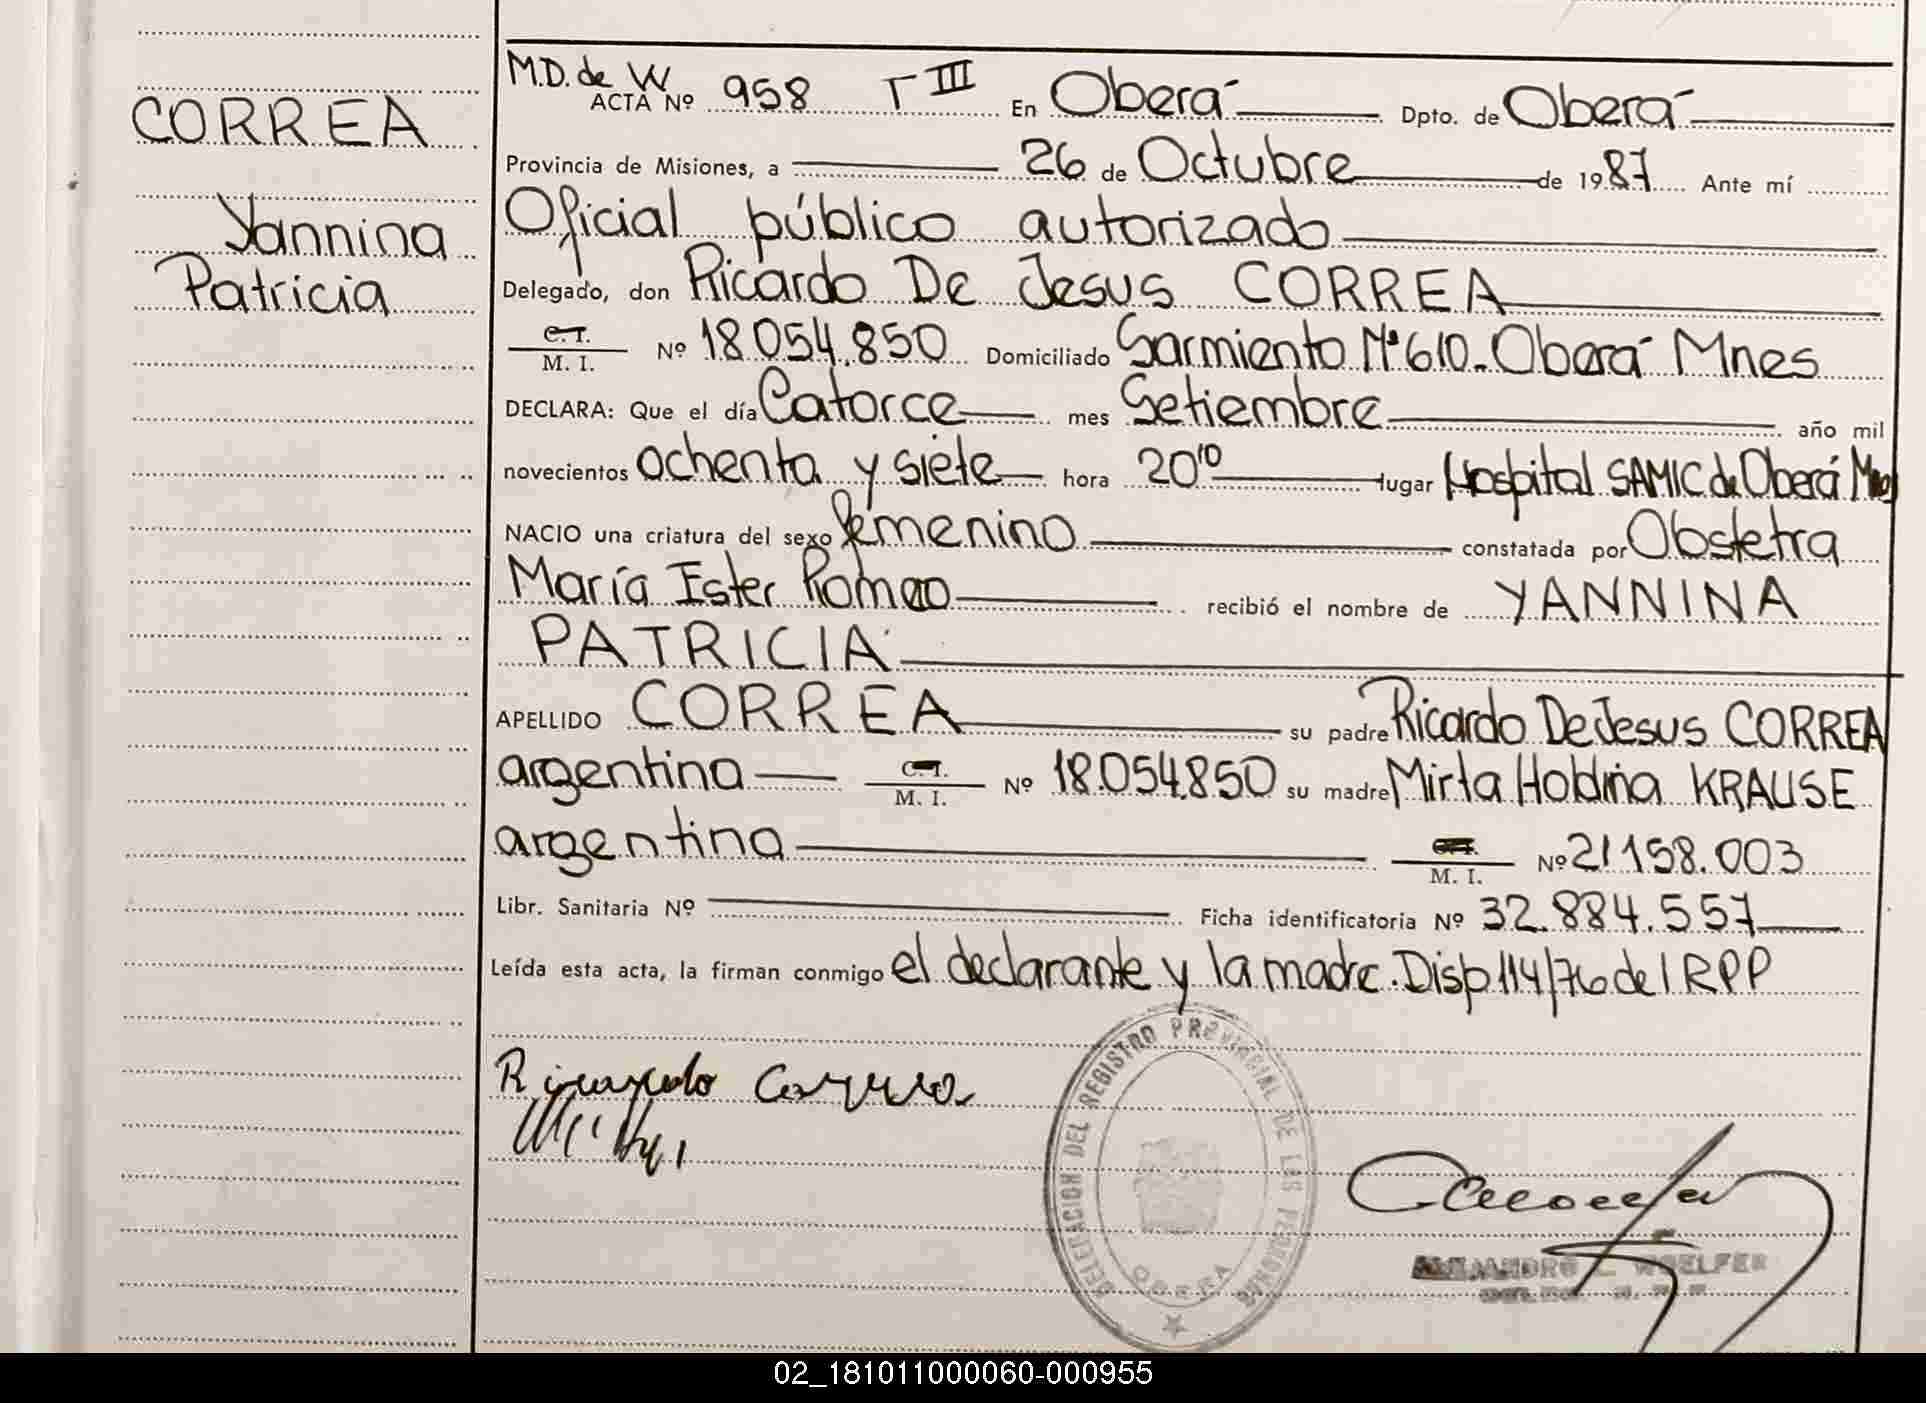 CORREA
Yannina
Patricia
M.D. de W
ACTA Nº 958 T III En Oberá Dpto. de Oberá
Provincia de Misiones, a 26 de Octubre de 1987 Ante mí
Oficial público autorizado
Delegado, don Ricardo De Jesus CORREA
C. I.
M. I. Nº 18.054.850 Domiciliado Sarmiento Nº 610 - Oberá Mnes
DECLARA: Que el día Catorce mes Setiembre año mil
novecientos ochenta y siete hora 20 10 lugar Hospital SAMIC de Oberá Mnes
NACIO una criatura del sexo femenino constatada por Obstetra
María Ester Romao recibió el nombre de YANNINA
PATRICIA
APELLIDO CORREA su padre Ricardo De Jesus CORREA
argentina C. I. M. I. Nº 18.054.850 su madre Mirta Holdina KRAUSE
argentina M. I. Nº 21.158.003
Libr. Sanitaria Nº Ficha identificatoria Nº 32.884.557
Leída esta acta, la firman conmigo el declarante y la madre. Disp 114/76 del RPP
Ricardo Correa
DELEGACION DEL REGISTRO PROVINCIAL DE LAS PERSONAS
OBERA
ALEJANDRO WOELFER
02_181011000060-000955